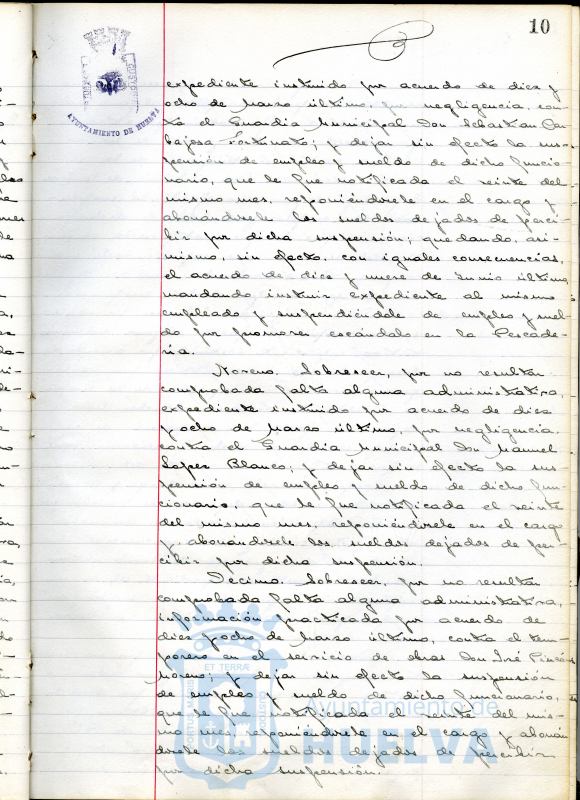 10
AYUNTAMIENTO DE HUELVA
expediente instruido por acuerdo de diez y
ocho de Marzo último, por negligencia, con-
tra el Guardia Municipal Don Sebastian Car-
bajosa Fortunato; y dejar sin efecto la sus-
pensión de empleo y sueldo de dicho funcio-
nario, que le fue notificada el veinte del
mismo mes, reponiéndosele en el cargo y
abonándosele los sueldos dejados de perci-
bir por dicha suspensión; quedando, asi-
mismo, sin efecto, con iguales consecuencias,
el acuerdo de diez y nueve de Junio último,
mandando instruir expediente al mismo
empleado y suspendiéndole de empleo y suel-
do por promover escándalo en la Pescade-
ría.
Noveno. Sobreseer, por no resultar
comprobada falta alguna administrativa,
expediente instruido por acuerdo de diez
y ocho de Marzo último, por negligencia,
contra el Guardia Municipal Don Manuel
Lopez Blanco; y dejar sin efecto la sus-
pensión de empleo y sueldo de dicho fun-
cionario, que le fue notificada el veinte
del mismo mes, reponiéndosele en el cargo
y abonándosele los sueldos dejados de per-
cibir por dicha suspensión.
Decimo. Sobreseer, por no resultar
comprobada falta alguna administrativa,
información practicada por acuerdo de
diez y ocho de Marzo último, contra el tem-
porero en el servicio de obras Don José
Moreno; y dejar sin efecto la suspensión
de empleo y sueldo de dicho funcionario,
que le fue notificada el veinte del mis-
mo mes, reponiéndosele en el cargo y abonán-
dosele los sueldos dejados de percibir
por dicha suspensión.
ET TERRÆ
Ayuntamiento de
HUELVA